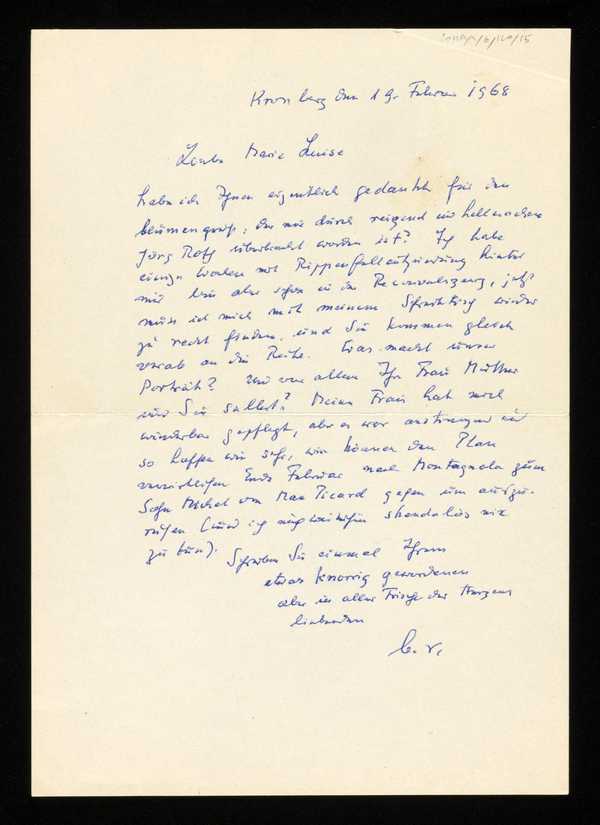 Kronberg den 19. Februar 1968
Marie Luise
habe ich Ihnen eigentlich gedankt für den
Blumengruß, der mir durch reizend
Jörg überbracht worden ist? Ich habe
einige Wochen mit Rippenfellentzündung hinter
mir bin aber schon in der Reconvaleszenz, jetzt
muss ich mich mit meinem wieder
zu recht finden, und Sie kommen gleich
vorab an die Reihe. Was macht unser
Porträt? Und vor allem Ihr Frau Mutter
und Sie selbst? Meine Frau hat mich
wunderbar gepflegt, aber es war anstrengend und
so hoffen wir sehr, wir können den Plan
verwirklichen Ende Februar nach Montagnola zum
Sohn Michel von Max Picard gehen um auszu-
ruhen (und ich nix
zu tun).
Schreiben Sie einmal Ihrem
etwas knorrig gewordenen
aber in aller Frische des Herzens
liebenden